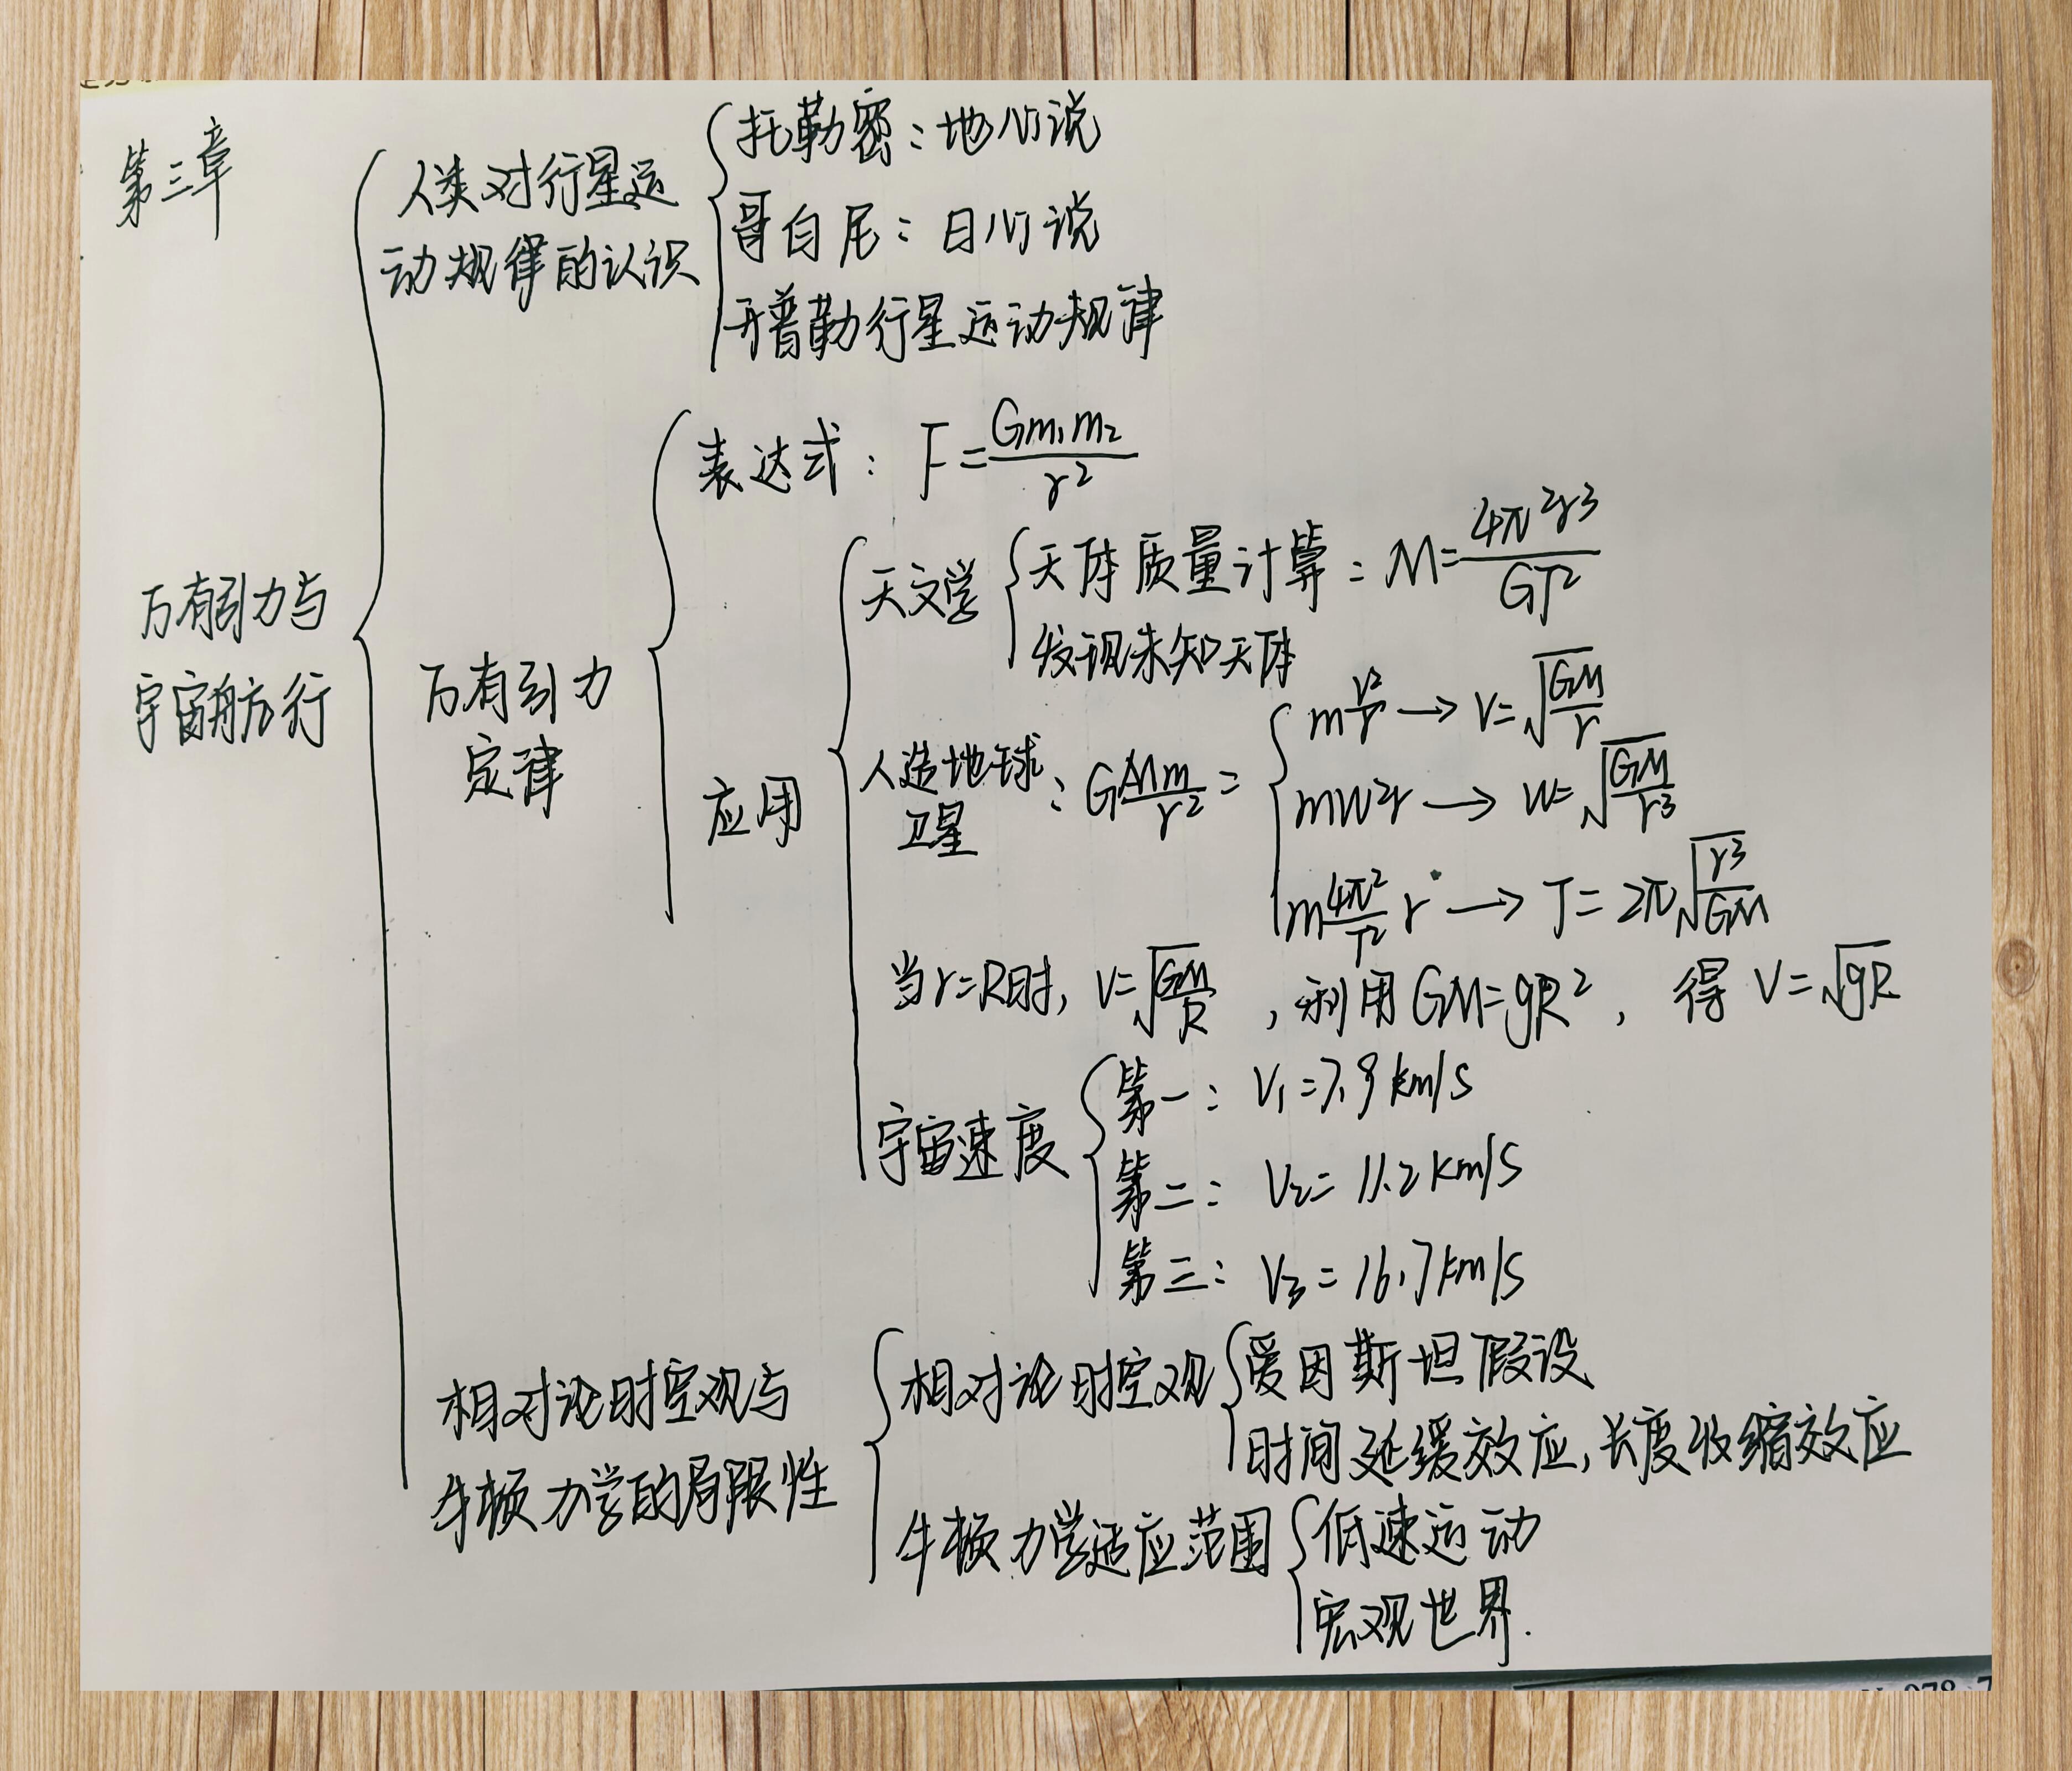 第三章
万有引力与
宇宙航行
人类对行星运
动规律的认识
托勒密：地心说
哥白尼：日心说
开普勒行星运动规律
万有引力
定律
表达式：F=Gm₁m₂/r²
应用
天文学
天体质量计算：M=4π²r³/GT²
发现未知天体
人造地球
卫星
：GMm/r²=
mv²/r→v=√(GM/r)
mw²r→w=√(GM/r³)
m4π²/T² r→T=2π√(r³/GM)
当r=R时，v=√(GM/R)，利用GM=gR²，得V=√gR
宇宙速度
第一：V₁=7.9km/s
第二：V₂=11.2km/s
第三：V₃=16.7km/s
相对论时空观与
牛顿力学的局限性
相对论时空观
爱因斯坦假设
时间延缓效应，长度收缩效应
牛顿力学适应范围
低速运动
宏观世界.